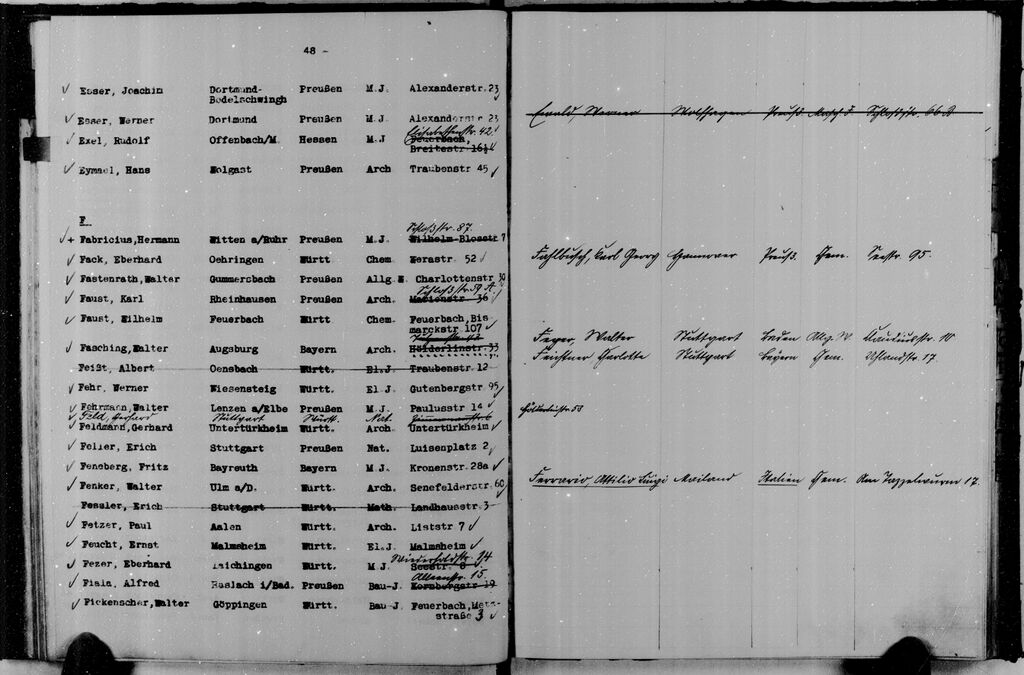 48 -
Esser, Joachin Dortmund- Preußen M.J. Alexanderstr. 23
Bodelschwingh
Esser, Werner Dortmund Preußen M.J. Alexanderstr 23
Elisabethenstr. 42
Exel, Rudolf Offenbach/M. Hessen M.J Feuerbach,
Breitestr 16½
Eymael, Hans Wolgast Preußen Arch Traubenstr 45
F
Schloßstr. 87.
+ Fabricius,Hermann Witten a/Ruhr Preußen M.J. Wilhelm-Blosstr 7
Fack, Eberhard Oehringen Württ. Chem Werastr. 52
Fastenrath,Walter Gummersbach Preußen Allg.W. Charlottenstr 30
Schloßstr. 59 A.
Faust, Karl Rheinhausen Preußen Arch. Marienstr 36
Faust, Wilhelm Feuerbach Württ Chem. Feuerbach,Bis
marckstr 107
Fasching,Walter Augsburg Bayern Arch. Hölderlinstr.33
Feißt, Albert Oensbach Württ. El.J. Traubenstr 12
Fehr, Werner Wiesensteig Württ. El J. Gutenbergstr 95
Fohrmann,Walter Lenzen a/Elbe Preußen M.J. Paulusstr 1a
Feld, Gerhard Stuttgart Württ. Nat.
Feldmann,Gerhard Untertürkheim Württ. Arch Untertürkheim
Feller, Erich Stuttgart Preußen Nat. Luisenplatz 2
Fensberg, Fritz Bayreuth Bayern M.J. Kronenstr.28a
Fenker, Walter Ulm a/D. Württ. Arch. Senefelderstr.60
Fessler, Erich Stuttgart Württ. Math. Landhausstr.3
Fetzer, Paul Aalen Württ. Arch. Liststr 7
Feucht, Ernst Malmsheim Württ. El.J. Malmsheim
Wiederholdstr. 14
Fezer, Eberhard Laichingen Württ. M.J. Seestr 8
Alleenstr. 15.
Fiala, Alfred Haslach i/Bad. Preußen Bau-J. Kornbergstr 19
Fickenscher,Walter Göppingen Württ. Bau-J. Feuerbach,Metz-
straße 3
Ewald, Werner Wolfhagen Preuß. Masch J. Schloßstr. 66 A.
Fahlbusch, Carl Georg Hannover Preuß. Chem. Seestr. 95.
Feyer, Walter Stuttgart Baden Allg. W. Claudiusstr. 10
Feichtner Charlotte Stuttgart Bayern Chem. Uhlandstr. 17.
Hölderlinstr. 53
Ferrario, Attilio Luigi Mailand Italien Chem. Am Tazzelwurm 17.